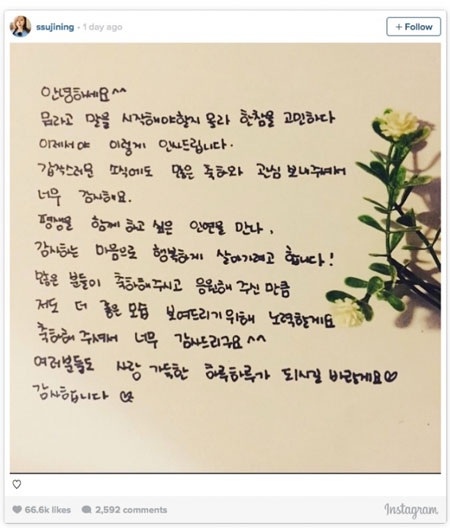 ssujining • 1 day ago
+ Follow
안녕하세요^^
뭐라고 말을 시작해야할지 몰라 한참을 고민하다
이제서야 이렇게 인사드립니다.
갑작스러운 소식에도 많은 축하와 관심 보내주셔서
너무 감사해요.
평생을 함께 하고 싶은 인연을 만나,
감사하는 마음으로 행복하게 살아가려고 합니다!
많은 분들이 축하해주시고 응원해 주신 만큼
저도 더 좋은 모습 보여드리기위해 노력할게요
축하해 주셔서 너무 감사드리구요^^
여러분들도 사랑 가득한 하루하루가 되시길 바랄게요♡
감사합니다 ♡
♡
66.6k likes 2,592 comments
Instagram